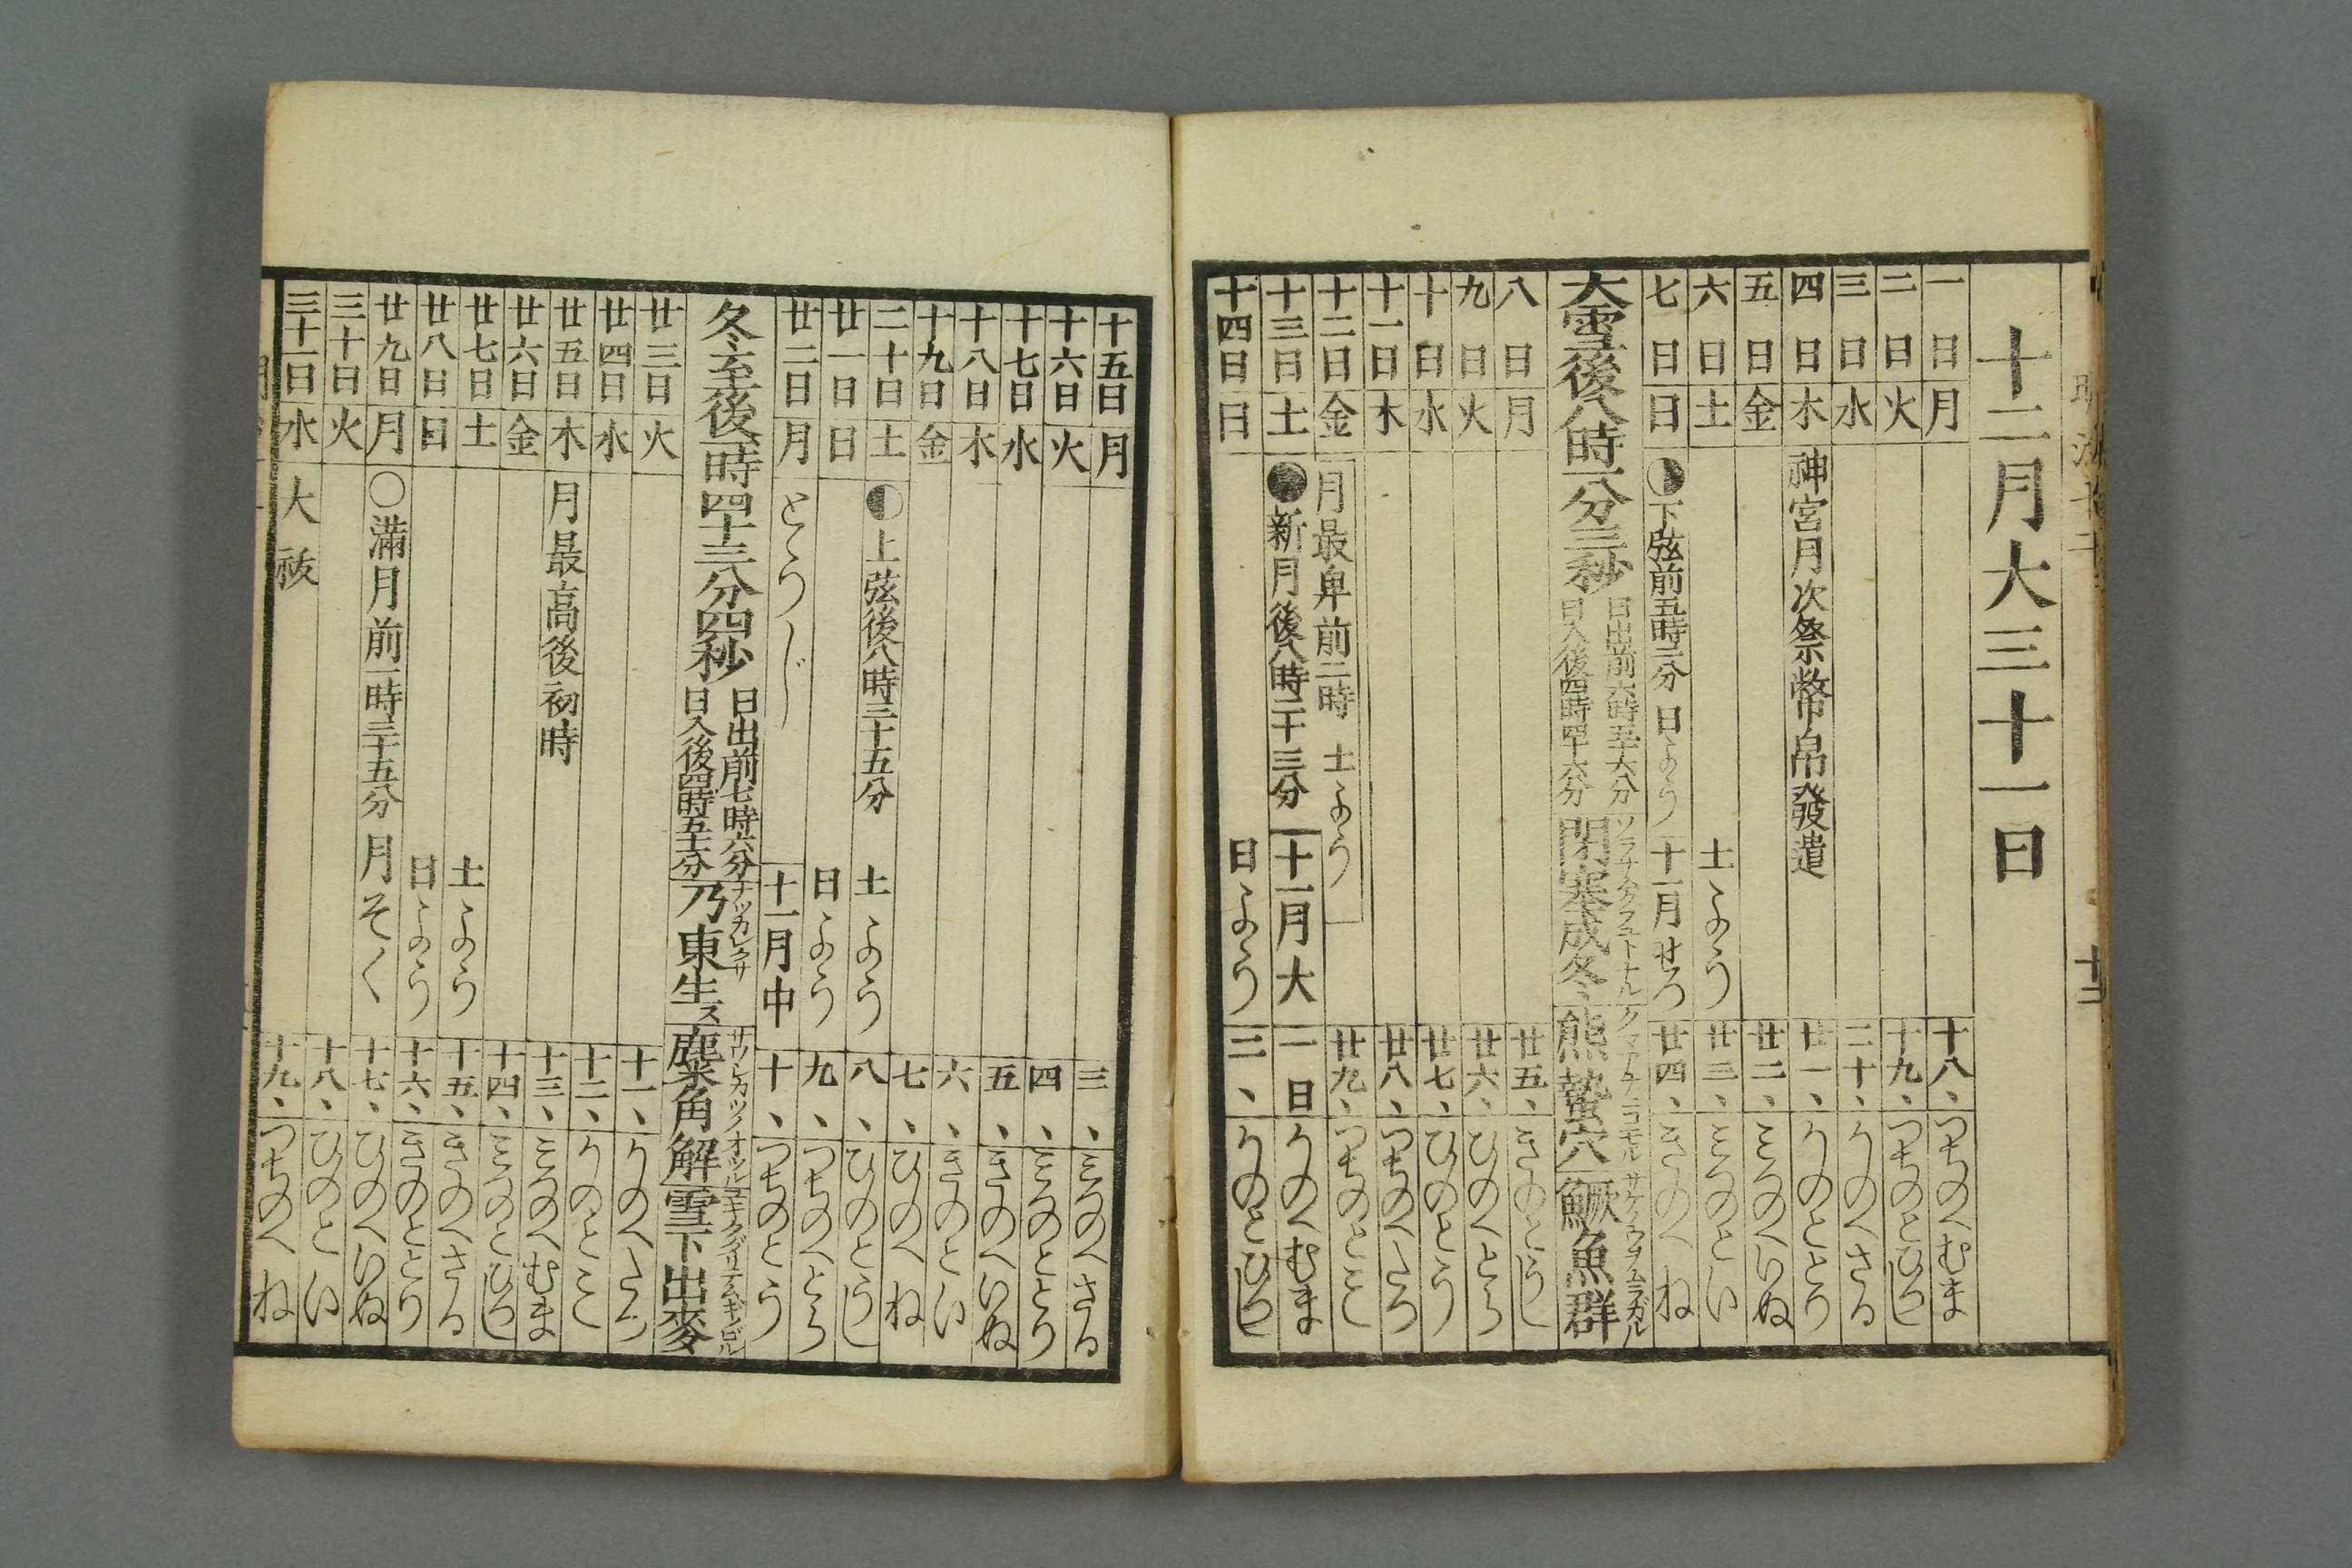 十二月大三十一日
一日 月 十八、 つちのへむま
二日 火 十九、 つちのとひつし
三日 水 二十、 かのへさる
四日 木 神宮月次祭幣帛發遣 廿一、 かのととり
五日 金 廿二、 みつのへいぬ
六日 土 土よう 廿三、 みつのとい
七日 日 下弦前五時二分 日よう 十一月せつ 廿四、 きのへね
大雪後八時一分三秒 日出前六時五十六分 日入後四時四十六分 閉塞成冬 ソラサムクフユトナル 熊蟄穴 クマアナニコモル 鱖魚群 サケノウヲムラガル
八日 月 廿五、 きのとうし
九日 火 廿六、 ひのへとら
十日 水 廿七、 ひのとう
十一日 木 廿八、 つちのへたつ
十二日 金 月最卑前二時 土よう 廿九、 つちのとみ
十三日 土 ●新月後八時二十三分 十一月大 一日 かのへむま
十四日 日 日よう 二、 かのとひつし
十五日 月 三、 みつのへさる
十六日 火 四、 みつのととり
十七日 水 五、 きのへいぬ
十八日 木 六、 きのとい
十九日 金 七、 ひのへね
二十日 土 上弦後八時三十五分 土よう 八、 ひのとうし
廿一日 日 日よう 九、 つちのへとら
廿二日 月 とうじ 十一月中 十、 つちのとう
冬至後一時四十三分四秒 日出前七時六分 日入後四時五十一分 乃東生ス ナツカレクサ 麋角解 サワシカツノオツル 雪下出麥 ユキクダリテムギノビル
廿三日 火 十一、 かのへたつ
廿四日 水 十二、 かのとみ
廿五日 木 月最高後初時 十三、 みつのへむま
廿六日 金 十四、 みつのとひつし
廿七日 土 土よう 十五、 きのへさる
廿八日 日 日よう 十六、 きのととり
廿九日 月 ○滿月前一時三十五分 月そく 十七、 ひのへいぬ
三十日 火 十八、 ひのとい
三十一日 水 大祓 十九、 つちのへね